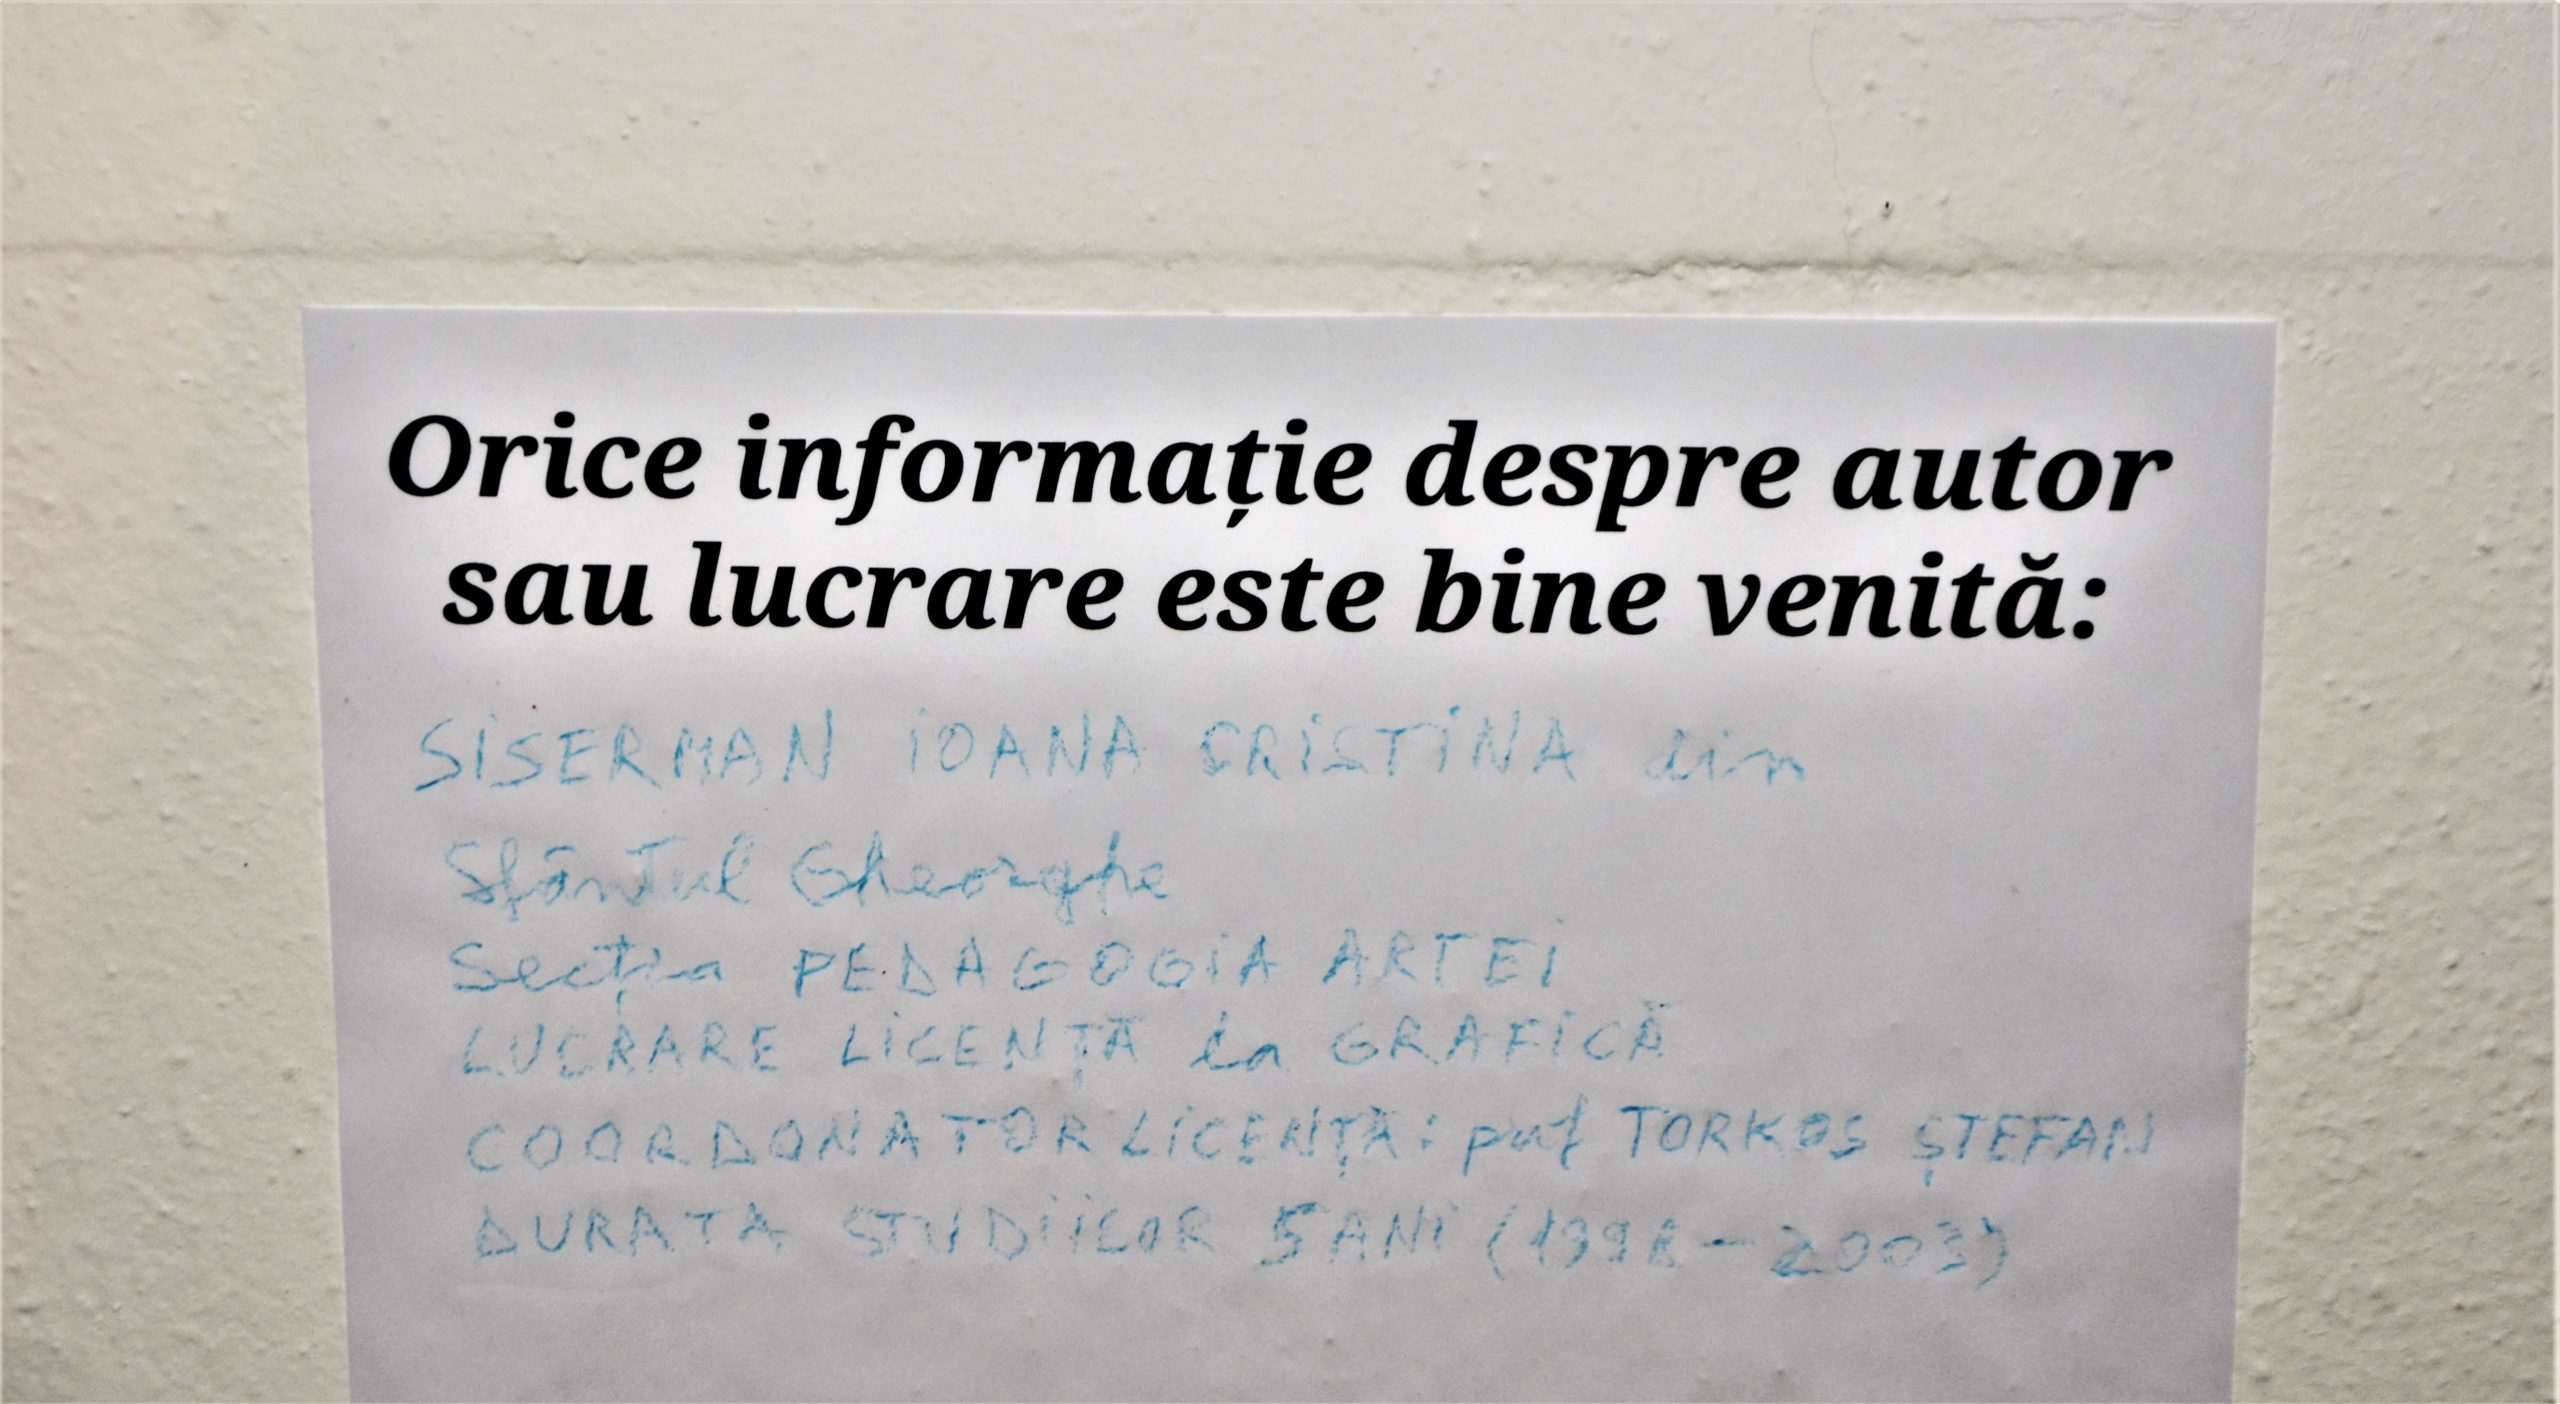 Orice informație despre autor
sau lucrare este bine venită:
SISERMAN IOANA CRISTINA din
Sfântul Gheorghe
Secția PEDAGOGIA ARTEI
LUCRARE LICENȚĂ la GRAFICĂ
COORDONATOR LICENȚĂ: prof TORKOS ȘTEFAN
DURATA STUDIILOR 5 ANI (1998-2003)